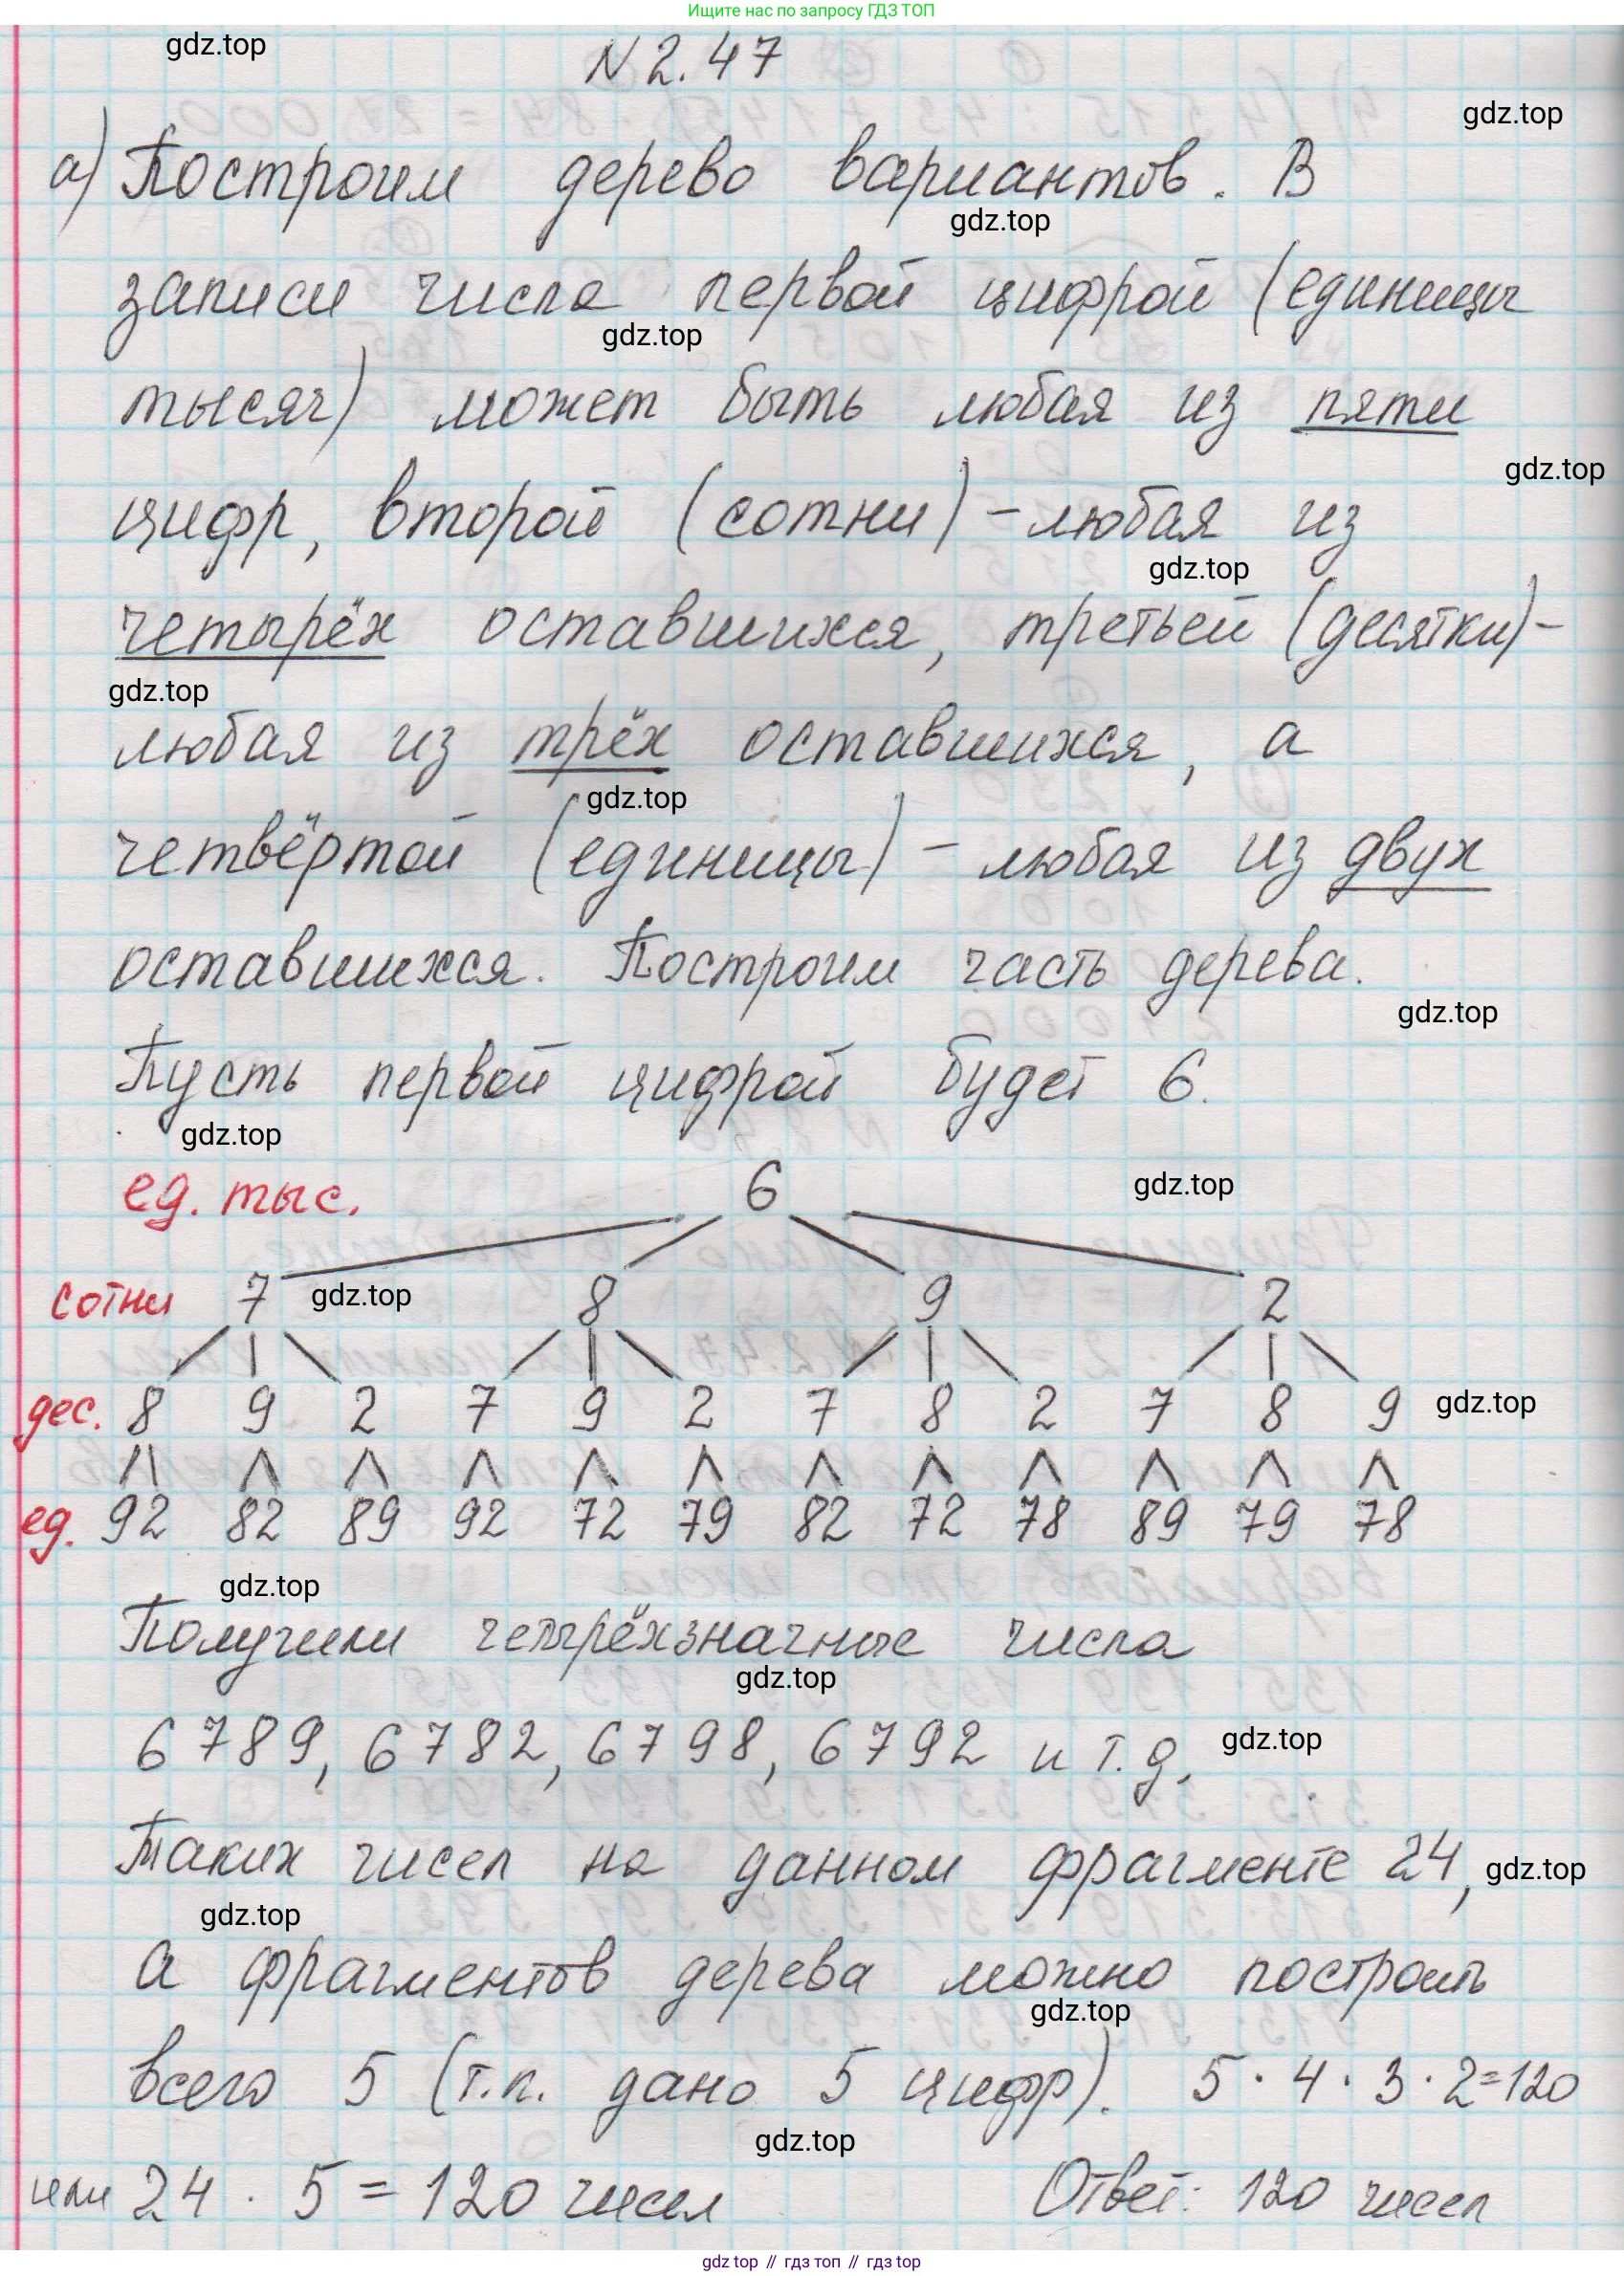 Ищите нас по запросу ГДЗ ТОП
gdz.top
N 2.47
gdz.top
а) Построим дерево вариантов. В
gdz.top
записи числа первой цифрой (единицы
gdz.top
тысяч) может быть любая из пяти
gdz.top
цифр, второй (сотни) - любая из
gdz.top
четырёх оставшихся, третьей (десятки) -
gdz.top
любая из трёх оставшихся, а
gdz.top
четвёртой (единицы) - любая из двух
оставшихся. Построим часть дерева.
gdz.top
Пусть первой цифрой будет 6.
gdz.top
ед. тыс. 6
gdz.top
сотни 7 8 9 2
gdz.top
дес. 8 9 2 7 9 2 7 8 2 7 8 9
gdz.top
ед. 92 82 89 92 72 79 82 72 78 89 79 78
gdz.top
Получили четырёхзначные числа
gdz.top
6789, 6782, 6798, 6792 и т.д.
gdz.top
Таких чисел на данном фрагменте 24,
gdz.top
gdz.top
а фрагментов дерева можно построить
gdz.top
всего 5 (т.к. дано 5 цифр). 5 · 4 · 3 · 2 = 120
gdz.top
или 24 · 5 = 120 чисел Ответ: 120 чисел
gdz.top // гдз топ // гдз top